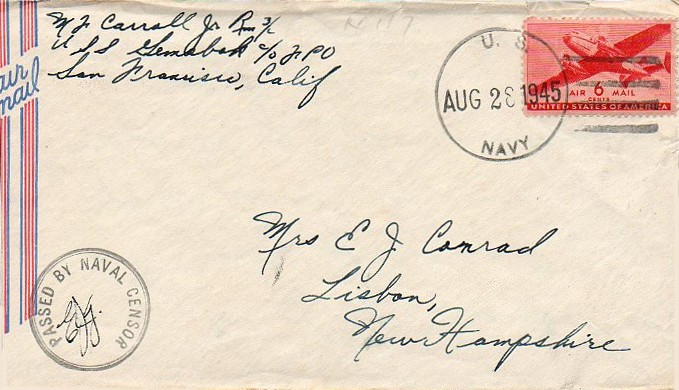 N 117
N F Carroll Jr Rm 3/c
U S S Gemsbok c/o F PO
San Francisco, Calif
air
mail
U. S.
AUG 28 1945
NAVY
AIR 6 MAIL
CENTS
UNITED STATES OF AMERICA
Mrs E J Conrad
Lisbon,
New Hampshire
PASSED BY NAVAL CENSOR